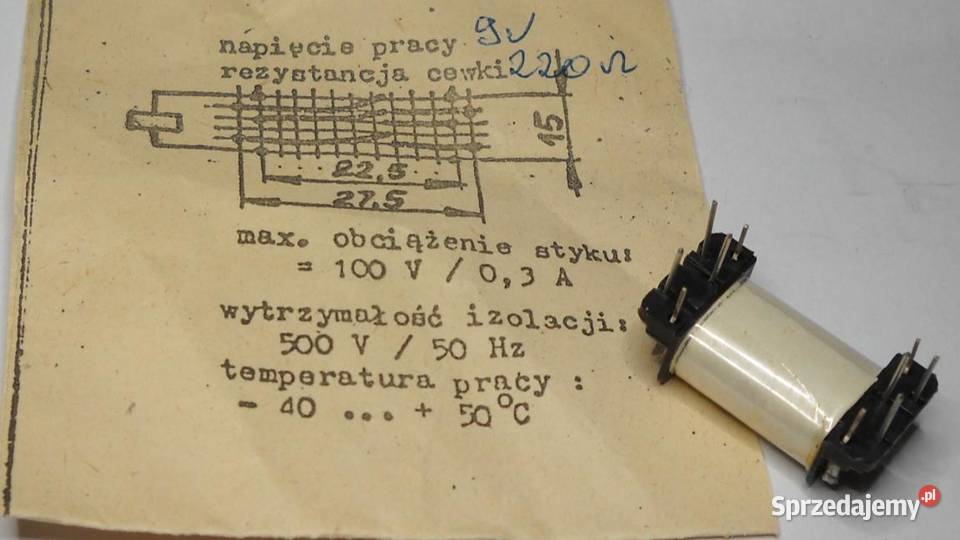 napięcie pracy 9V
rezystancja cewki 220 Ω
15
22,5
27,5
max. obciążenie styku:
= 100 V / 0,3 A
wytrzymałość izolacji:
500 V / 50 Hz
temperatura pracy :
- 40 ... + 50°C
Sprzedajemy.pl